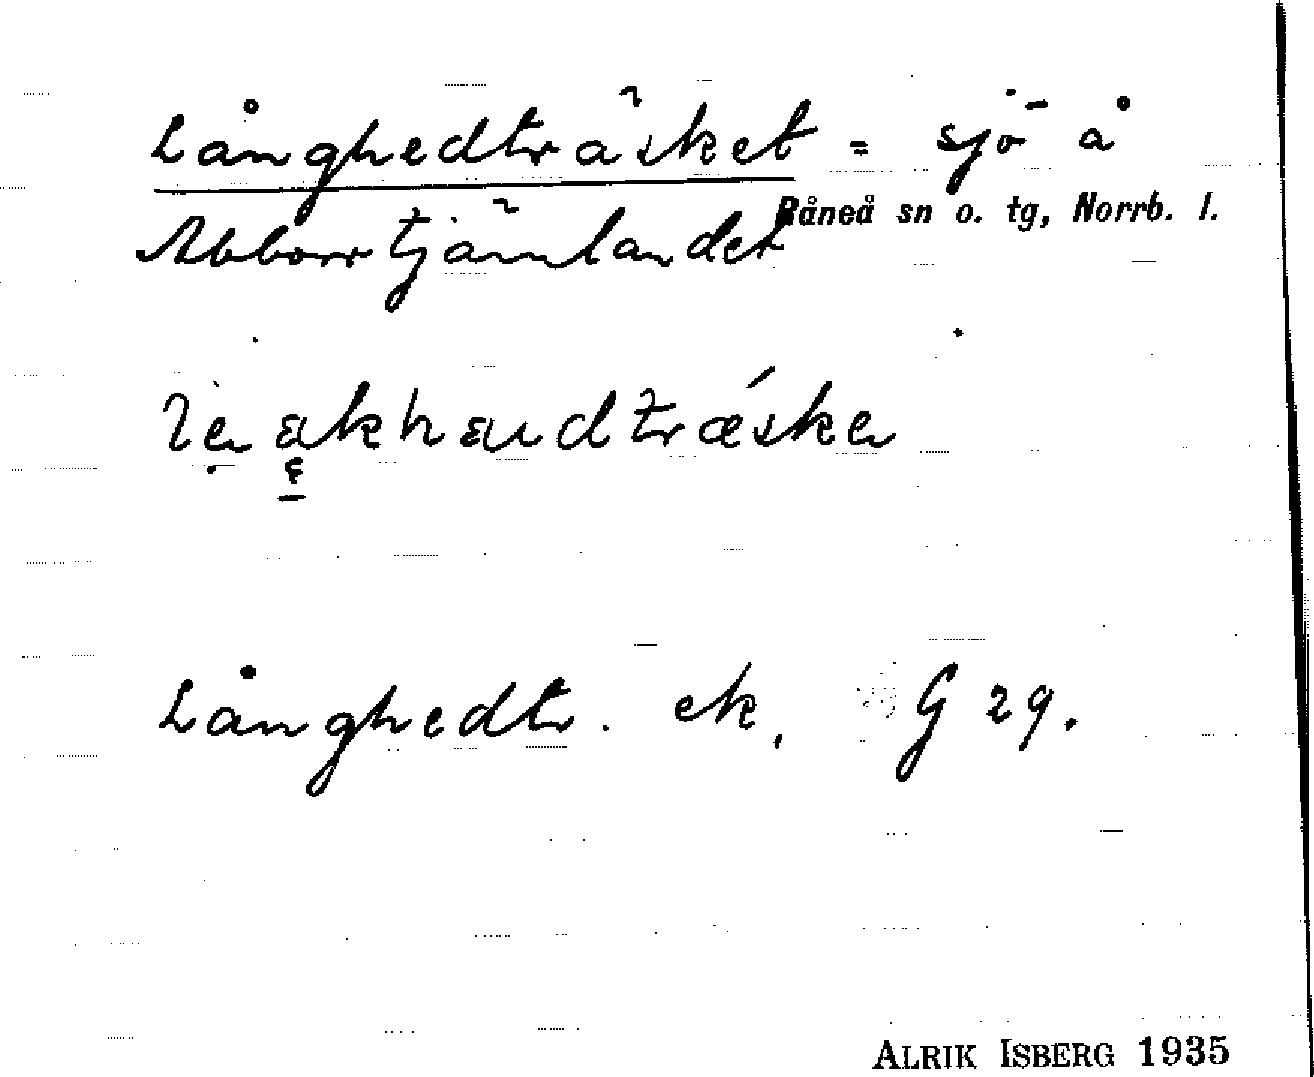 Långhedträsket = sjö å
Råneå sn o. tg, Norrb. l.
Abborrtjärnlandet
Långhedtr. ek. G 29.
ALRIK ISBERG 1935